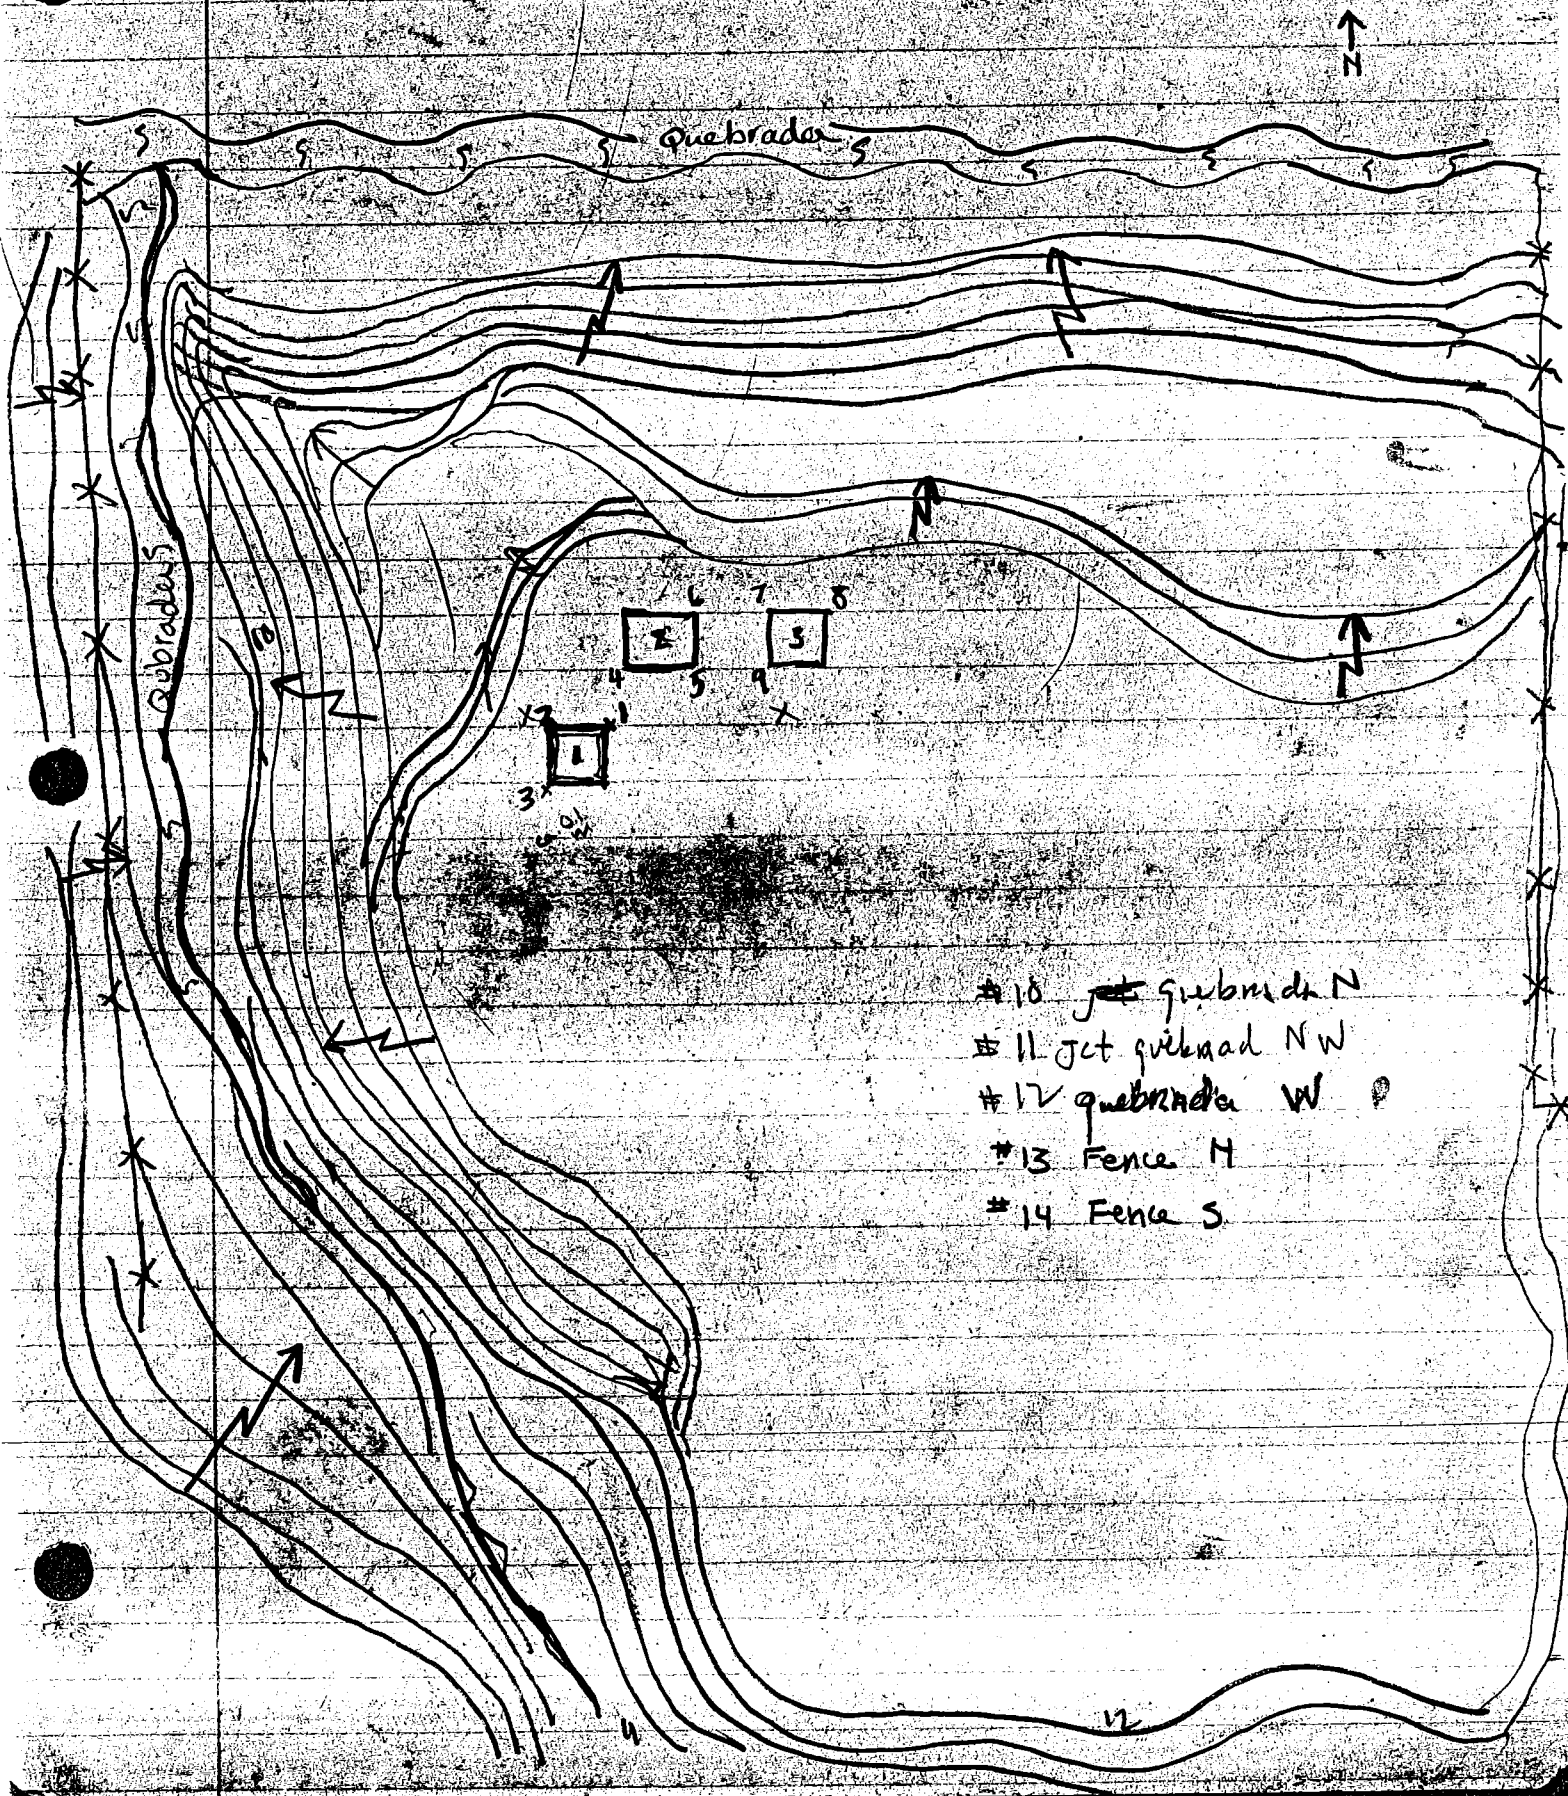 N
Quebradas
Qubradas
10
6
7
8
2
3
4
5
9
2
1
1
3
#10 quebrada N
#11 Jct quebrad NW
#12 quebrada W
#13 Fence N
#14 Fence S